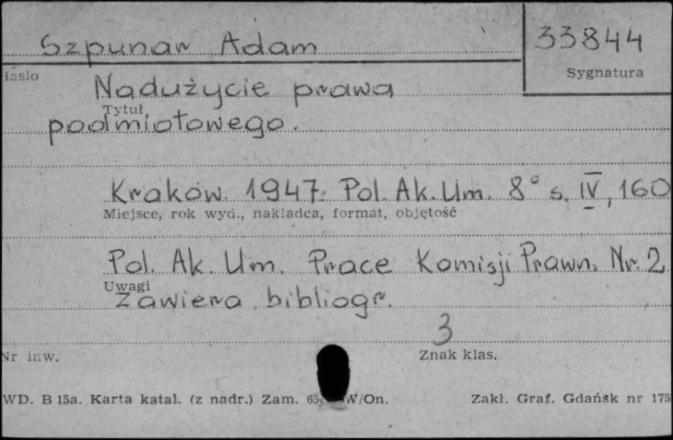 Szpunar Adam 33844
Hasło Sygnatura
Nadużycie prawa
Tytuł
podmiotowego.
Kraków. 1947. Pol. Ak. Um. 8° s. IV, 160
Miejsce, rok wyd., nakładca, format, objętość
Pol. Ak. Um. Prace Komisji Prawn. Nr. 2
Uwagi
Zawiera bibliogr.
3
Nr inw. Znak klas.
WD. B 15a. Karta katal. (z nadr.) Zam. W/On. Zakł. Graf. Gdańsk nr 175